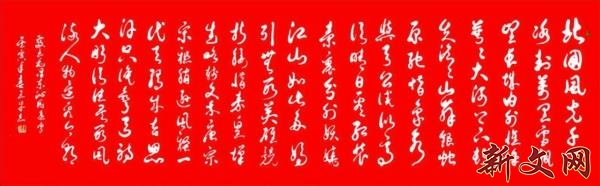 北国风光千里
冰封万里雪飘
望长城内外惟
余莽莽大河上下顿
失滔滔山舞银蛇
原驰蜡象欲
与天公试比高
须晴日看红装
素裹分外妖娆
江山如此多娇
引无数英雄竞
折腰惜秦皇汉
武略输文采唐宗
宋祖稍逊风骚一
代天骄成吉思
汗只识弯弓射
大雕俱往矣数风
流人物还看今朝
新文网